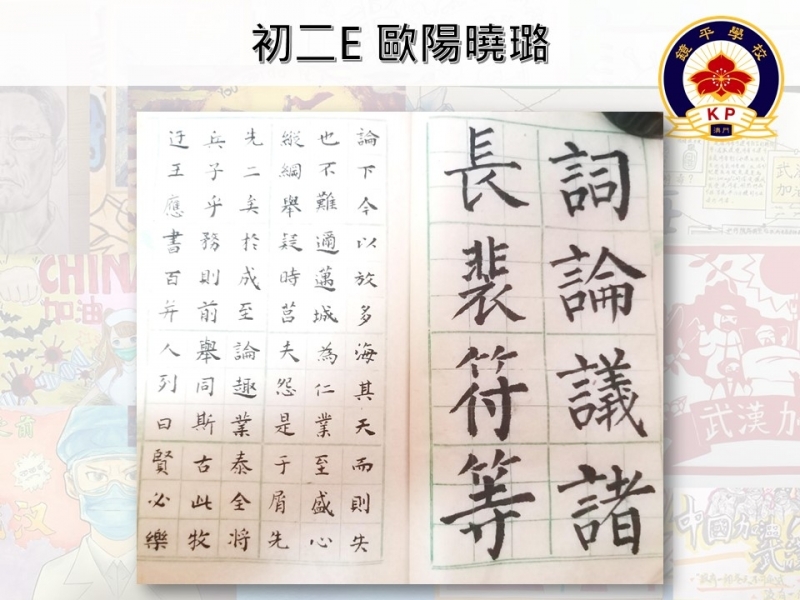 初二E 歐陽曉璐
鏡平學校
KP
澳門
詞論議諸
長裴符等
論下令以放多海其天而則失
也不難邇邁城為仁業至盛心
縱綱舉疑時莒夫怨是于屑先
先二矣於成至論趣業泰全将
兵子乎務則前舉同斯古此牧
迂王應書百并人列曰賢必樂
CHINA
加油
武漢加
中國加油